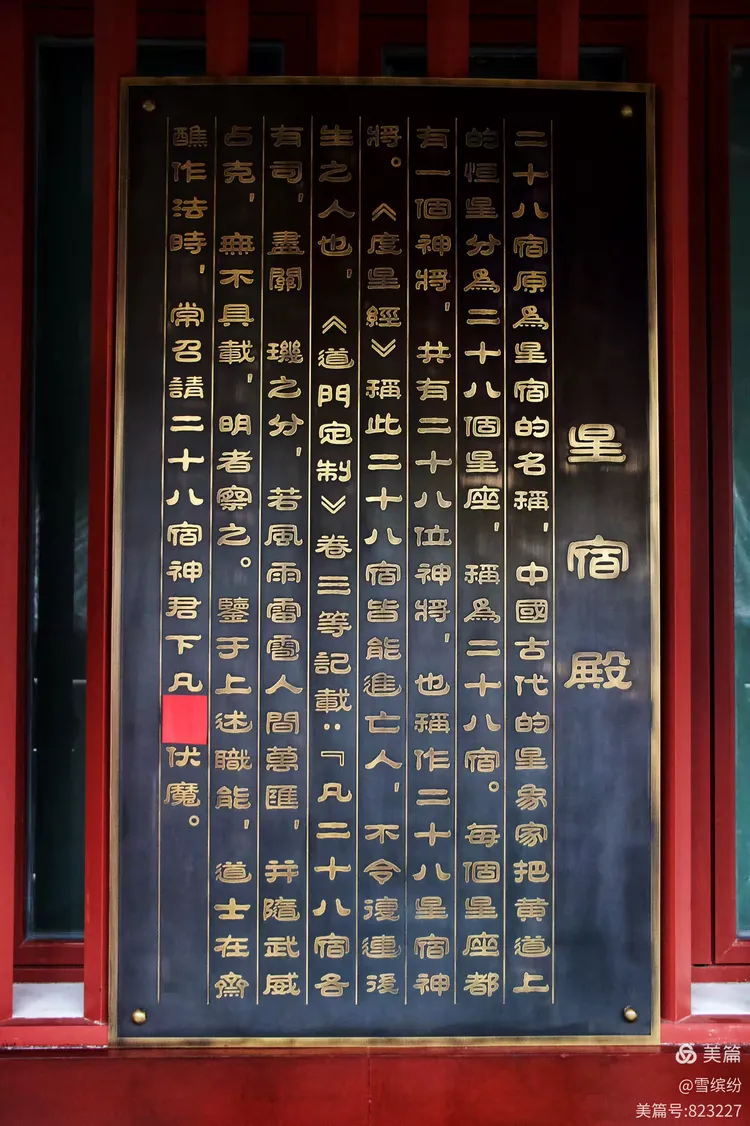 星宿殿
二十八宿原爲星宿的名稱，中國古代的星象家把黄道上
的恒星分爲二十八個星座，稱爲二十八宿。每個星座都
有一個神将，共有二十八位神将，也稱作二十八星宿神
將。《度星經》稱此二十八宿皆能進亡人，不令復連後
生之人也，《道門定制》卷三等記載：『凡二十八宿各
有司，盡關 璣之分，若風雨雷雹人間萬匯，并隨武威
占克，無不具載，明者察之。鑒于上述職能，道士在齋
醮作法時，常召請二十八宿神君下凡伏魔。
美篇
@雪缤纷
美篇号:823227